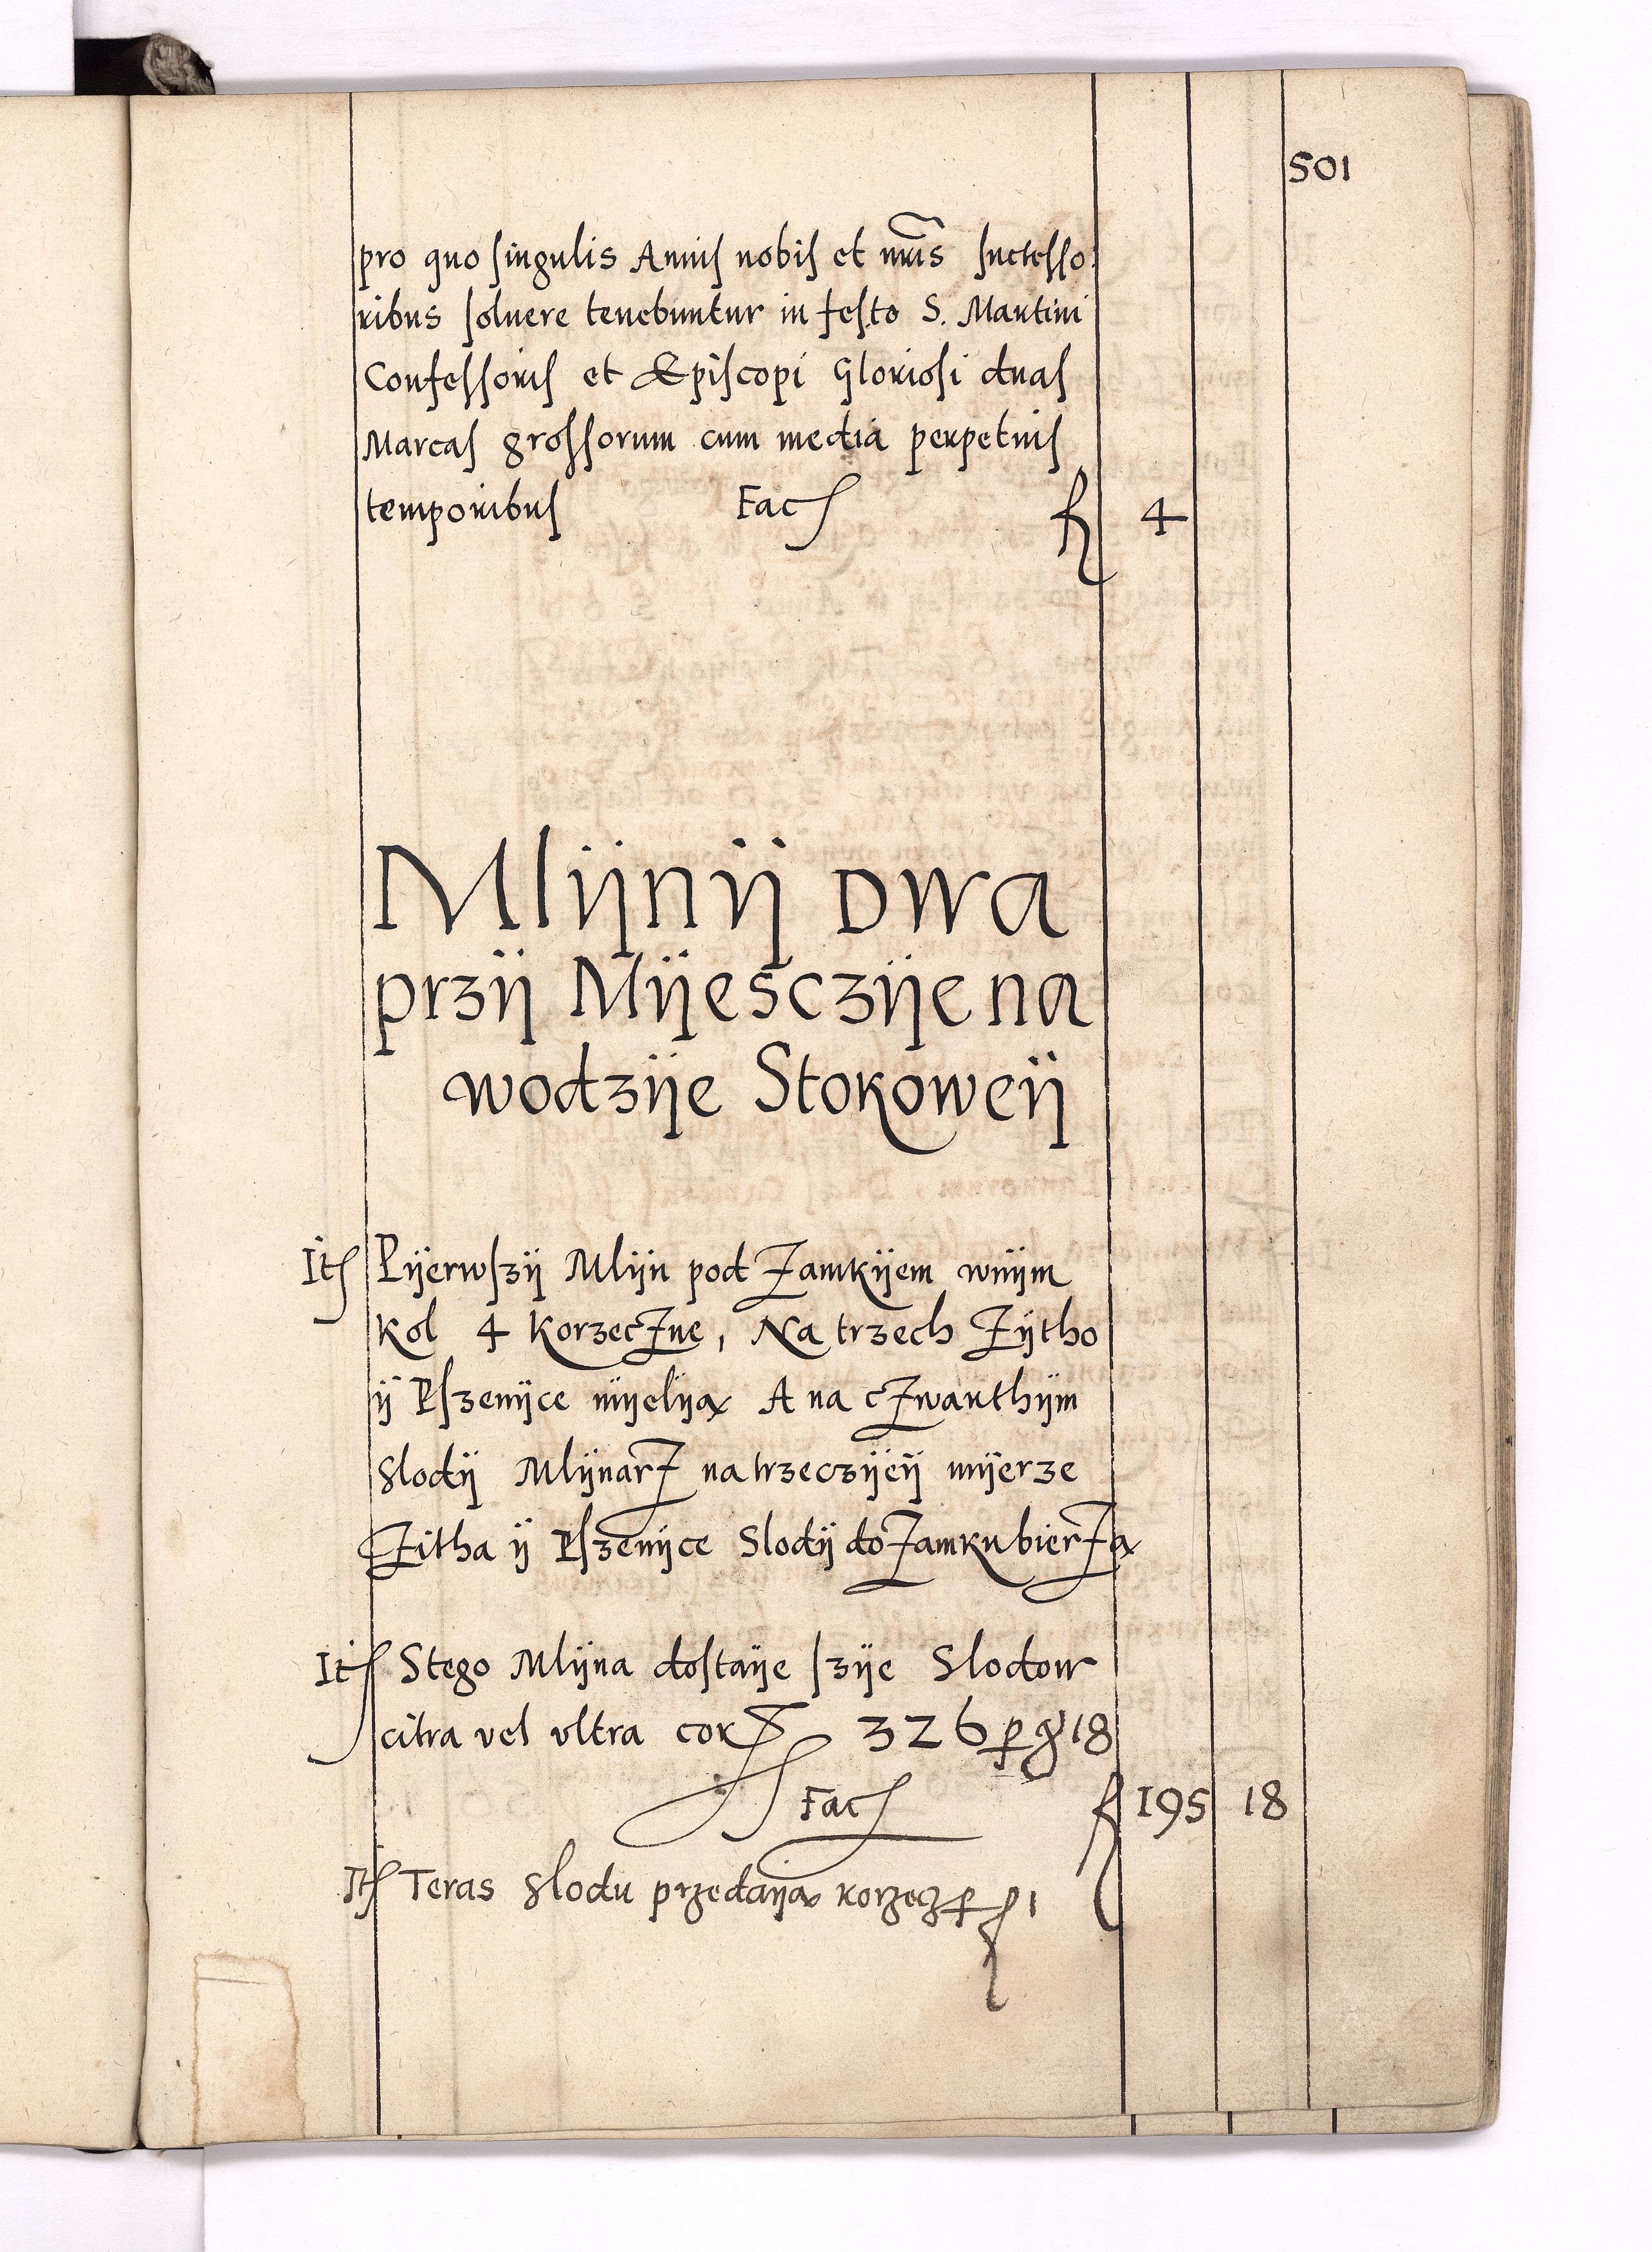 501
pro quo singulis Annis nobis et nrīs successo:
ribus soluere tenebuntur in festo S. Martini
Confessoris et Episcopi Gloriosi duas
Marcas grossorum cum media perpetuis
temporibus Fac fl 4
Mlÿnÿ DWa
przÿ Mÿesczÿe na
wodzÿe Stokoweÿ
It Pÿerwszÿ Mlÿn pod Zamkÿem wnÿm
Kol 4 Korzeczne, Na trzech Zÿtho
ÿ Pszenÿce mÿelÿą A na czwarthÿm
Slodÿ Mlÿnarz na trzeczÿeÿ mÿerze
Zitha ÿ Pszenÿce Slodÿ do Zamku bierzą
It Stego Mlÿna dostaÿe szÿe Slodow
citra vel vltra cor 326 p g 18
Fac fl 195 18
It Teras slodu przedaÿą korzecz p fl 1